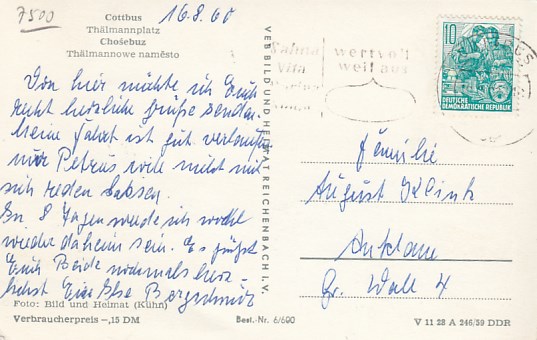 7500
Cottbus
Thälmannplatz
Chośebuz
Thälmannowe naměsto
16.8.60
Von hier möchte ich Euch
recht herzliche Grüße senden.
Meine Fahrt ist gut verlaufen
nur Petrus, wollte nicht mit
sich reden lassen.
In 8 Tagen werde ich wohl
wieder daheim sein. Es grüßt
Euch Beide nochmals herz-
lichst Eure Else
Foto: Bild und Heimat (Kühn)
Verbraucherpreis –,15 DM
Best.-Nr. 6/600
VEB BILD UND HEIMAT REICHENBACH I. V.
wertvoll
weil aus
10
DEUTSCHE
DEMOKRATISCHE REPUBLIK
Familie
August Klink
Anklam
Gr. Wall 4
V 11 28 A 246/59 DDR